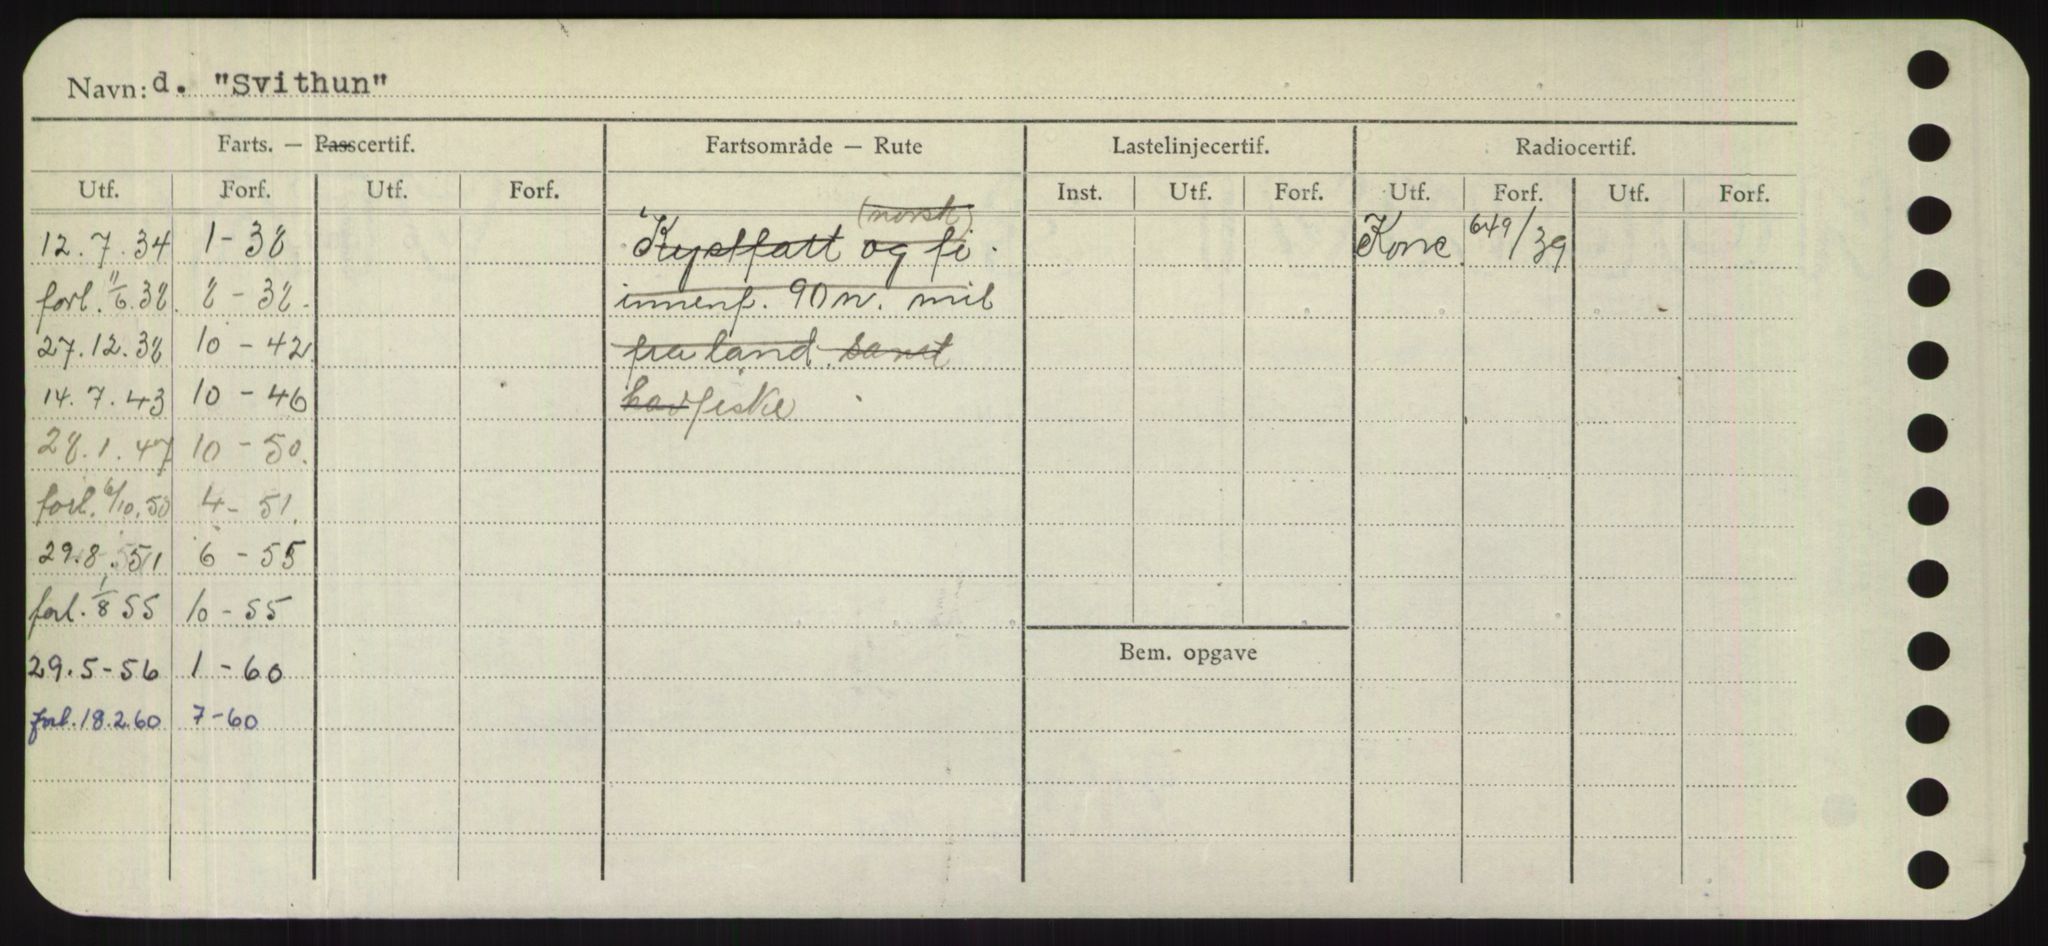 Navn: d. "Svithun"
Farts. — Passcertif. Fartsområde — Rute Lastelinjecertif. Radiocertif.
Utf. Forf. Utf. Forf. Inst. Utf. Forf. Utf. Forf. Utf. Forf.
(norsk)
12.7.34 1-38 Kystfart og fi Konc. 649/39
forl. 11/6.38. 8-38. innenf. 90 n. mil
27.12.38 10-42. fra land. samt
14.7.43 10-46 havfiske
28.1.47 10-50.
forl. 6/10.50 4-51.
29.8.51 6-55
forl. 1/8 55 10-55
Bem. opgave
29.5-56 1-60
forl. 18.2.60 7-60